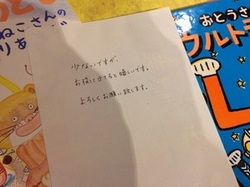 ねこさんの
少ないですが、
お役に立てると嬉しいです。
よろしくお願い致します。
おとうさ
ウルトラ